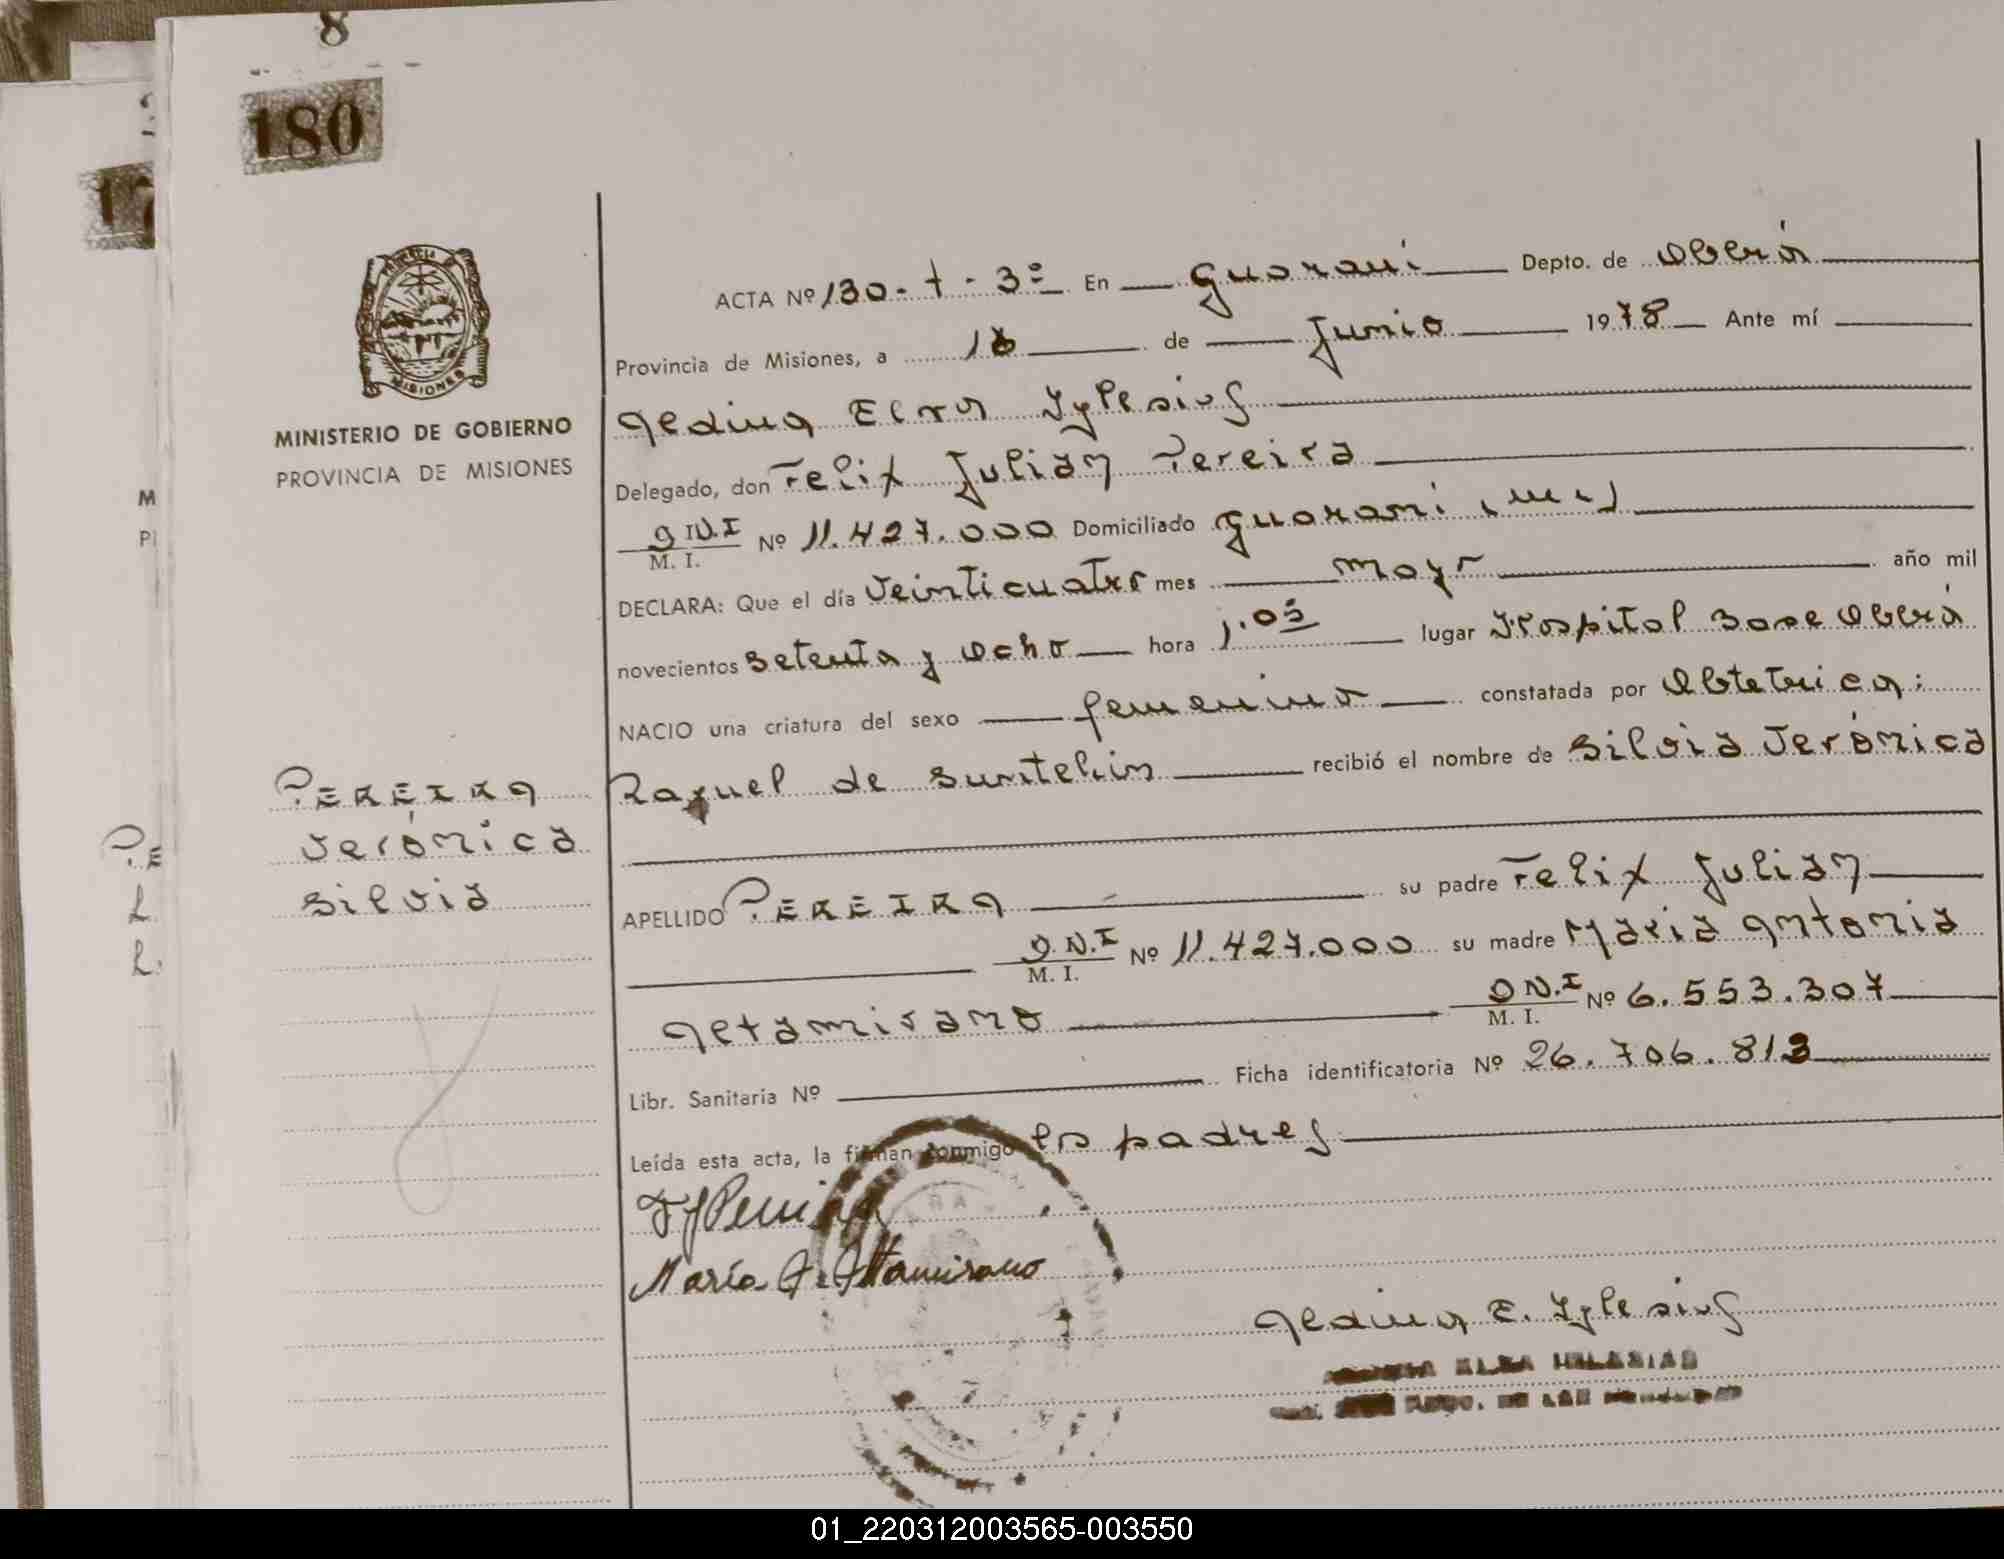 8
180
MINISTERIO DE GOBIERNO
PROVINCIA DE MISIONES
PEREIRA
Verónica
Silvia
ACTA Nº 130 - t - 3º En Guaraní Depto. de Oberá
Provincia de Misiones, a 16 de Junio 1978 Ante mí
Aedina Elva Yglesias
Delegado, don Felix Julian Pereira
D.N.I M. I. Nº 11.427.000 Domiciliado Guaraní (mis)
DECLARA: Que el día Veinticuatro mes mayo año mil
novecientos Setenta y Ocho hora 1.05 lugar Hospital Base Oberá
NACIO una criatura del sexo femenino constatada por Obtetrica:
Raquel de recibió el nombre de Silvia Verónica
APELLIDO PEREIRA su padre Felix Julian
D.N.I M. I. Nº 11.427.000 su madre Maria Antonia
Altamirano D N.I M. I. Nº 6.553.307
Libr. Sanitaria Nº Ficha identificatoria Nº 26.706.813
Leída esta acta, la firman conmigo los padres
FJPereira
María A. Altamirano
Aedina E. Yglesias
ELBA
01_220312003565-003550